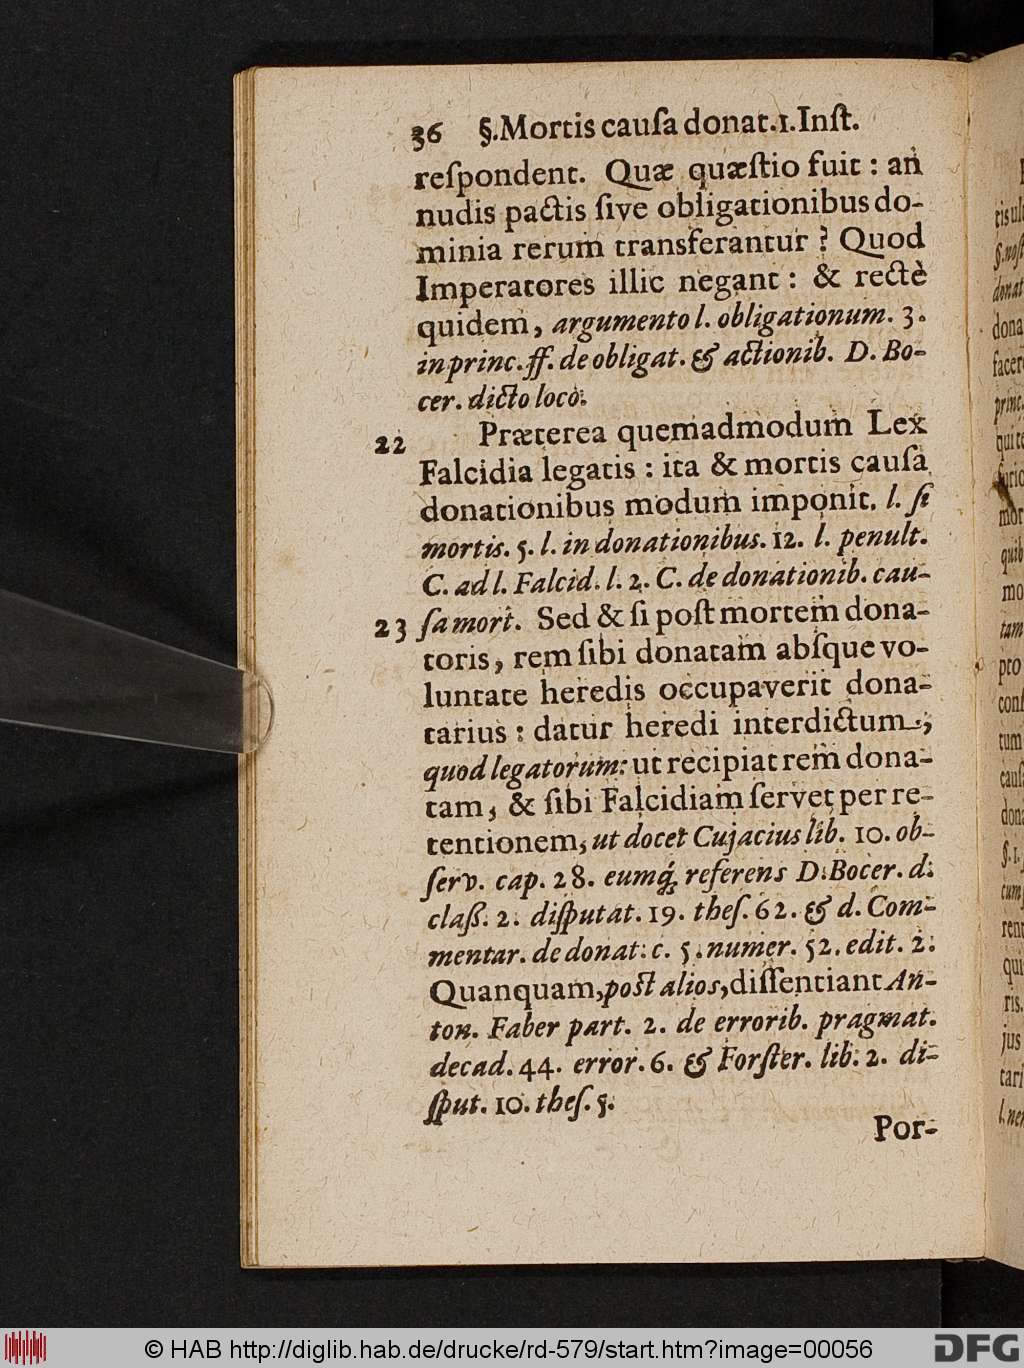 36 §. Mortis cauſa donat. 1. Inſt.
reſpondent. Quæ quæſtio fuit : an
nudis pactis ſive obligationibus do-
minia rerum transferantur ? Quod
Imperatores illic negant : & rectè
quidem, argumento l. obligationum. 3.
in princ. ff. de obligat. & actionib. D. Bo-
cer. dicto loco.
22 Præterea quemadmodum Lex
Falcidia legatis : ita & mortis cauſa
donationibus modum imponit. l. ſi
mortis. 5. l. in donationibus. 12. l. penult.
C. ad l. Falcid. l. 2. C. de donationib. cau-
23 ſa mort. Sed & ſi poſt mortem dona-
toris, rem ſibi donatam abſque vo-
luntate heredis occupaverit dona-
tarius : datur heredi interdictum,
quod legatorum: ut recipiat rem dona-
tam, & ſibi Falcidiam ſervet per re-
tentionem, ut docet Cujacius lib. 10. ob-
ſerv. cap. 28. eumq́; referens D. Bocer. d.
claß. 2. diſputat. 19. theſ. 62. & d. Com-
mentar. de donat. c. 5. numer. 52. edit. 2.
Quanquam, poſt alios, diſſentiant An-
ton. Faber part. 2. de errorib. pragmat.
decad. 44. error. 6. & Forſter. lib. 2. di-
ſput. 10. theſ. 5.
Por-
© HAB http://diglib.hab.de/drucke/rd-579/start.htm?image=00056
DFG